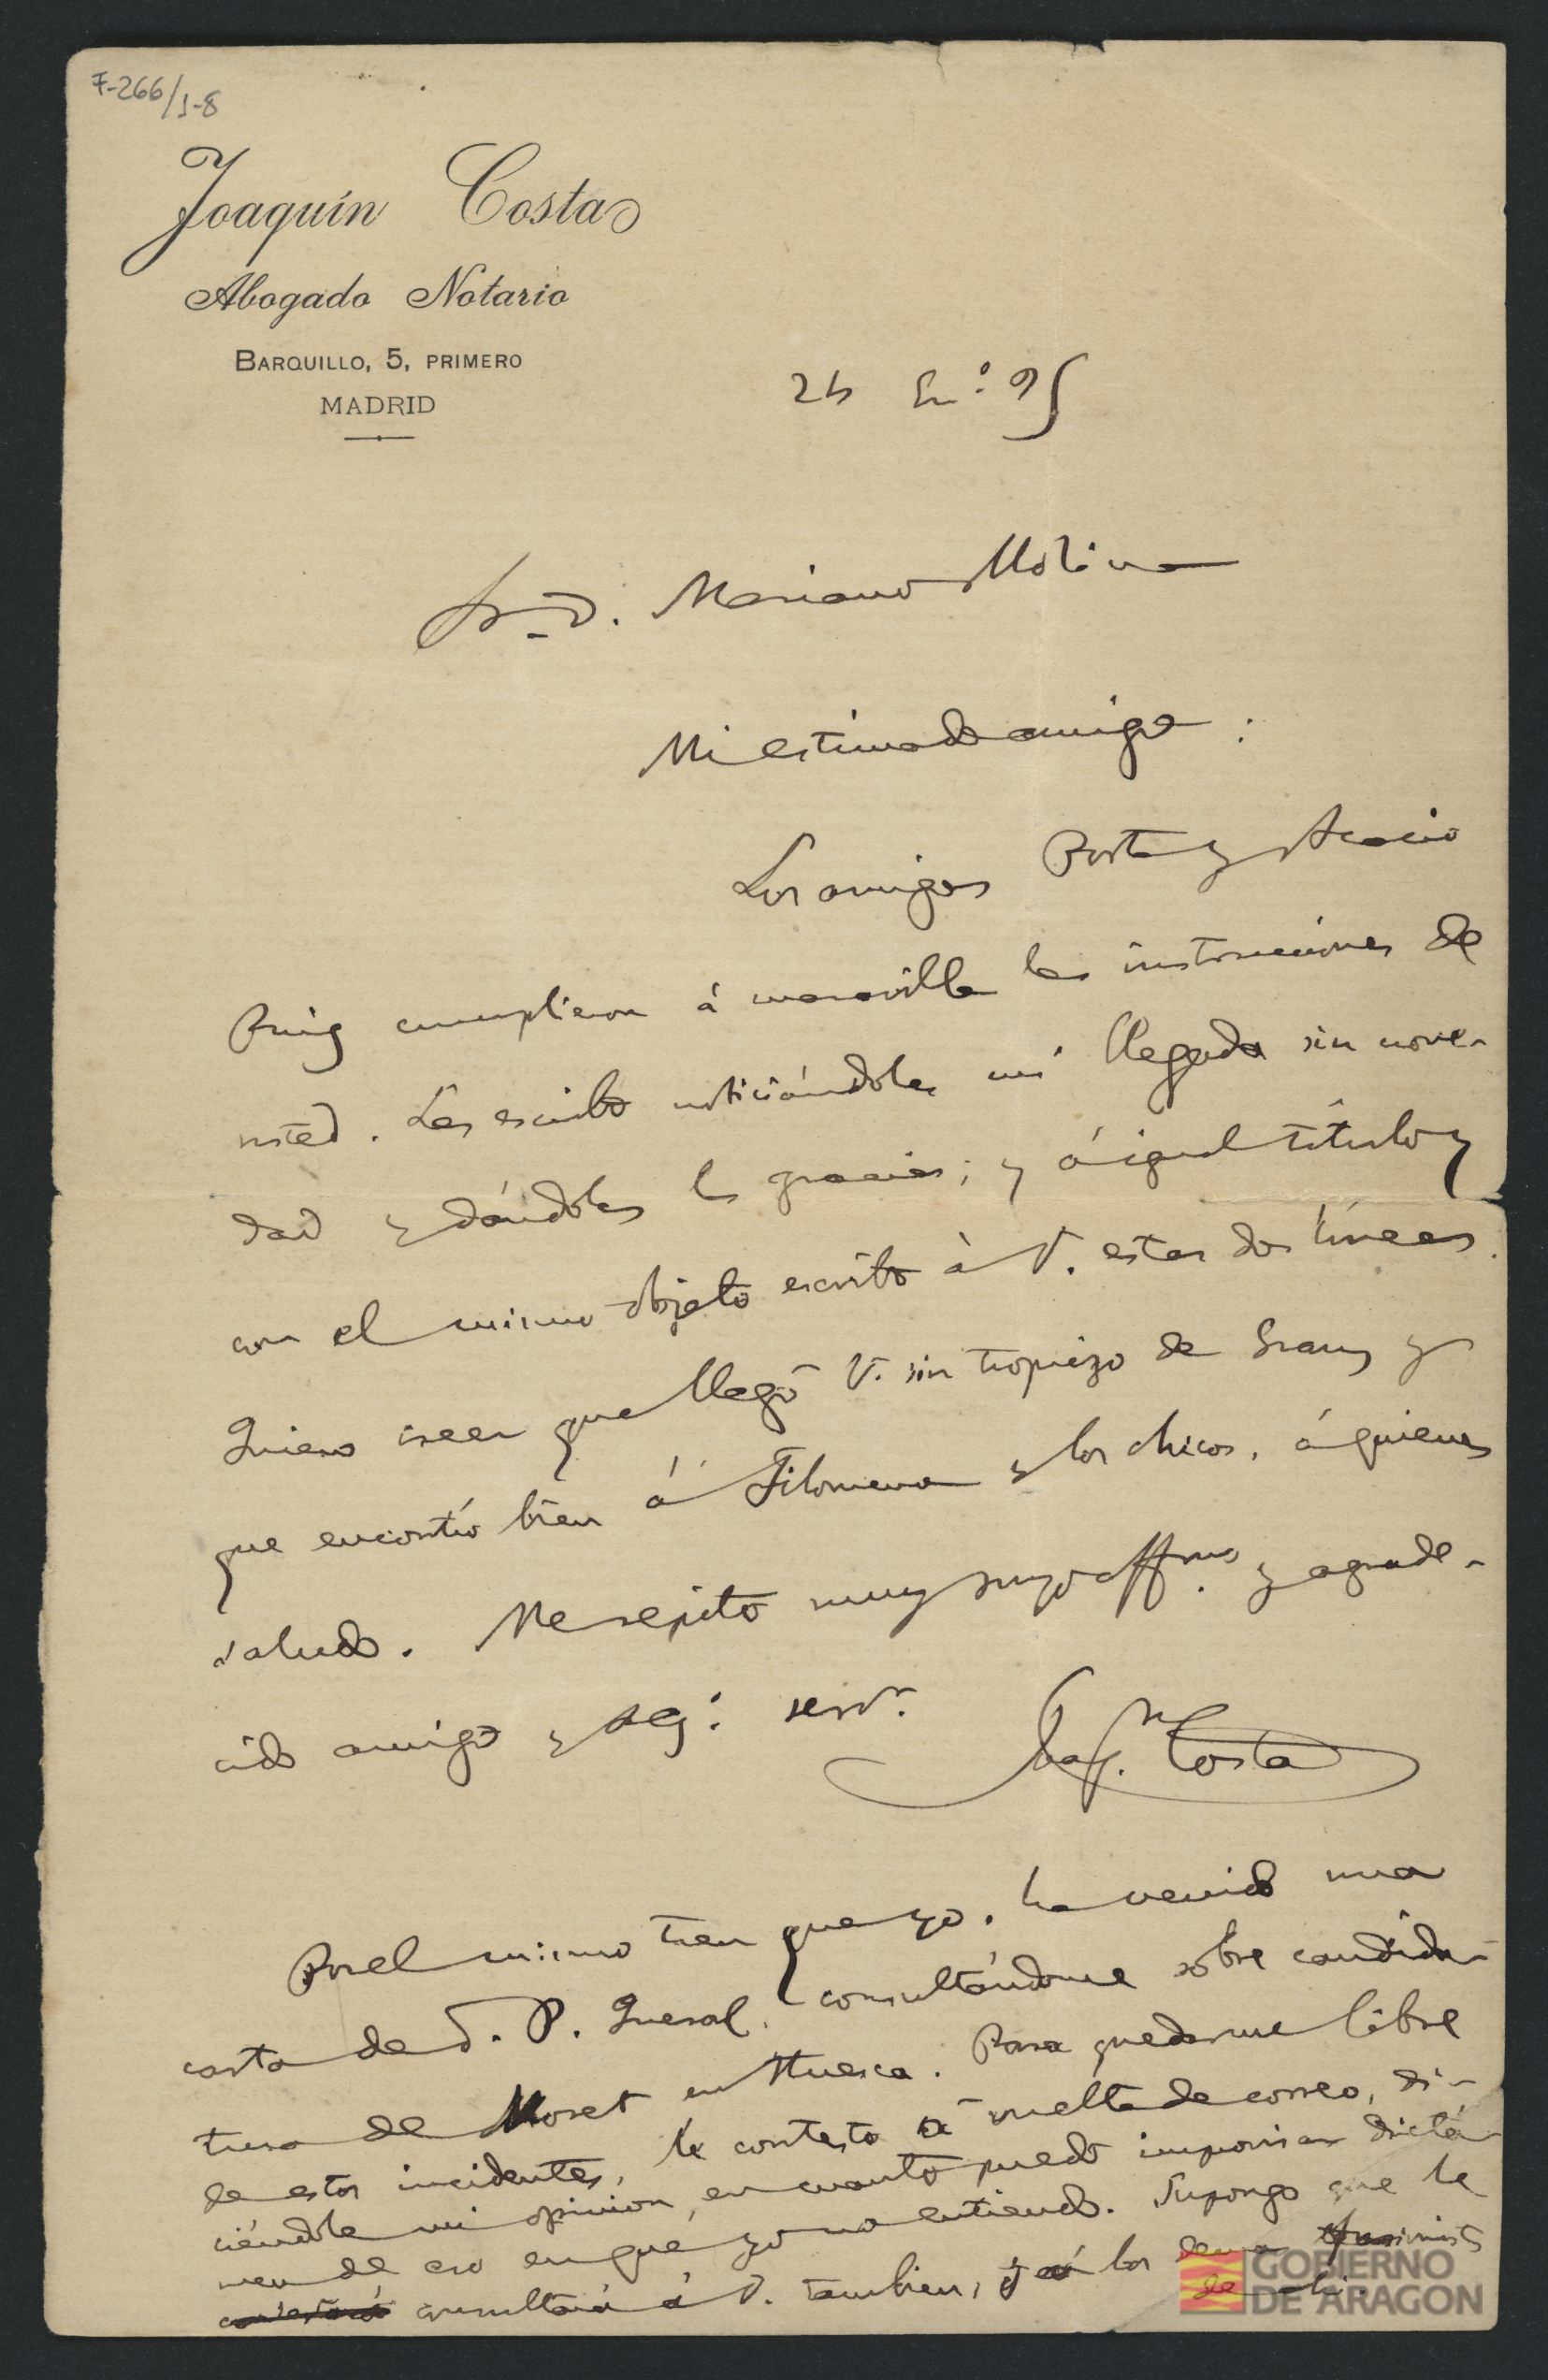 F-266/1-8
Joaquín Costa
Abogado Notario
BARQUILLO, 5, PRIMERO
MADRID
24 En.º 95
Sr. D. Mariano Molina
Mi estimado amigo:
Los amigos Porta y Acacio
Puig cumplieron á maravilla las instrucciones de
usted. Les escribo noticiándoles mi llegada sin nove-
dad y dándoles las gracias; y á igual título y
con el mismo objeto escribo á V. estas dos líneas.
Quiero creer que llegó V. sin tropiezo de Graus y
que encontró bien á Filomena y los chicos, á quienes
saludo. Me repito muy suyo affmo. y agrade-
cido amigo y seg.º serv.r
Joaq.n Costa
Por el mismo tren que yo, ha venido una
carta de D. P. Queral, consultándome sobre candida-
tura de Moret en Huesca. Para quedarme libre
de estos incidentes, le contesto á vuelta de correo, di-
ciéndole mi opinion, en cuanto puedo improvisar dictá-
men de eso en que yo no entiendo. Supongo que le
consultará á V. tambien, y á los demas
de ahi.
GOBIERNO
DE ARAGON